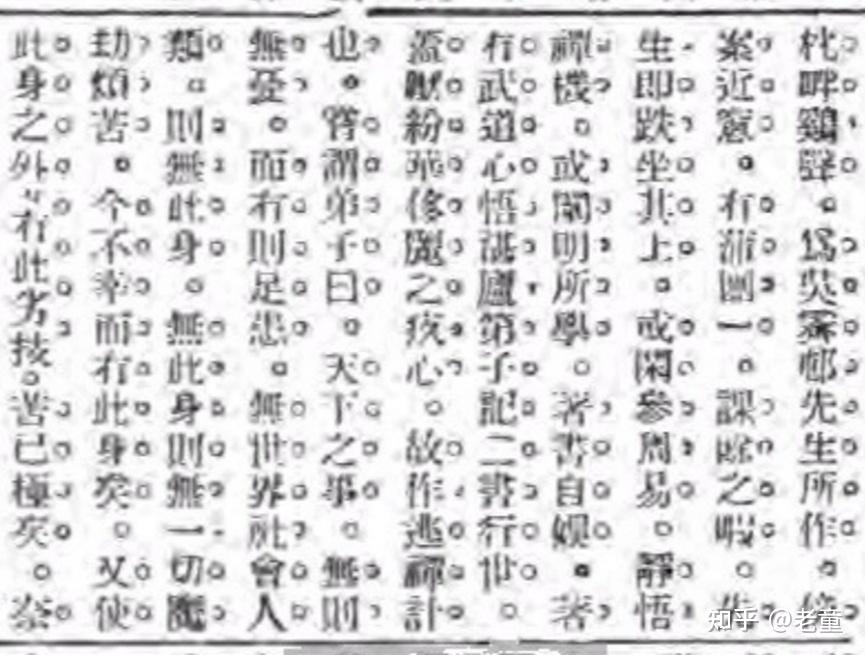 枕畔鷄聲。爲吳霽邨先生所作。
案近窻。有蒲團一。課餘之暇。
生即趺坐其上。或閑參周易。靜悟
禪機。或闡明所學。著書自娛。著
有武道心悟諶廬第子記二書行世。
蓋厭紛華侈麗之疚心。故作逃禪計
也。嘗謂弟子曰。天下之事。無則
無憂。而有則足患。無世界社會人
類。則無此身。無此身則無一切魔
劫煩苦。今不幸而有此身矣。又使
此身之外有此劣技。苦已極矣。奈
知乎 @老童